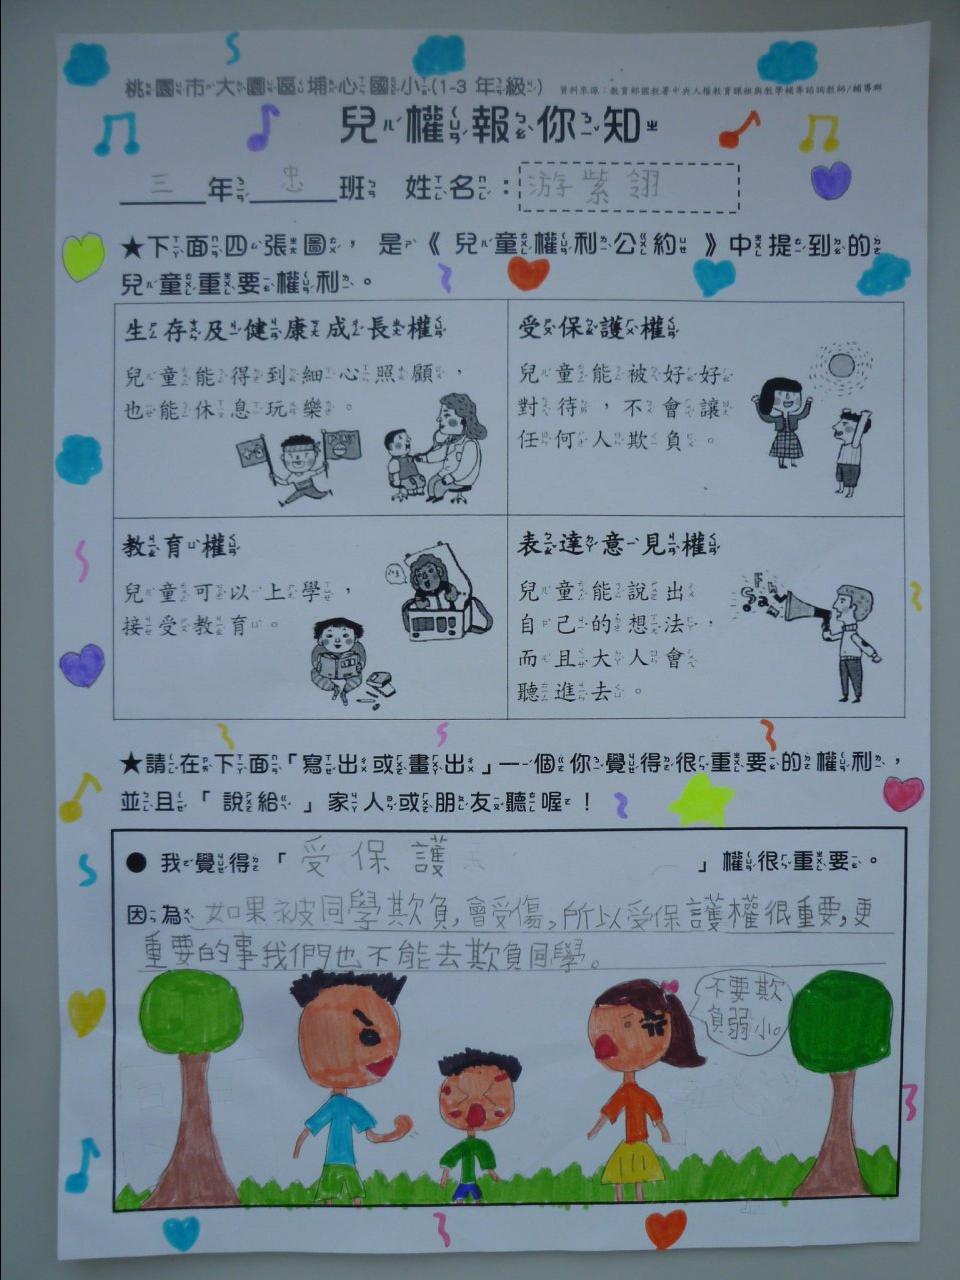 桃園市大園區埔心國小(1-3 年級)
資料來源：教育部國教署中央人權教育課程與教學輔導諮詢教師/輔導群
兒權報你知
三年忠班 姓名：游紫翎
★下面四張圖，是《兒童權利公約》中提到的
兒童重要權利。
生存及健康成長權
兒童能得到細心照顧，
也能休息玩樂。
受保護權
兒童能被好好
對待，不會讓
任何人欺負。
教育權
兒童可以上學，
接受教育。
表達意見權
兒童能說出
自己的想法，
而且大人會
聽進去。
★請在下面「寫出或畫出」一個你覺得很重要的權利，
並且「說給」家人或朋友聽喔！
●我覺得「受保護」權很重要。
因為如果被同學欺負,會受傷,所以受保護權很重要,更
重要的事我們也不能去欺負同學。
不要欺
負弱小。